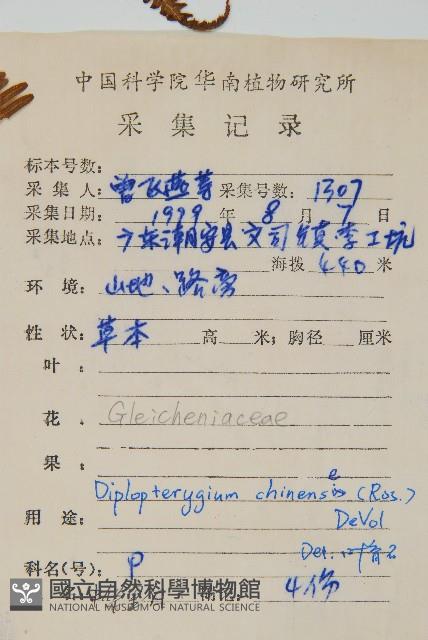 中国科学院华南植物研究所
采集记录
标本号数:
采集人: 曾飞燕等 采集号数: 1307
采集日期: 1979 年 8 月 7 日
采集地点: 广东潮安县文司镇李工坑
海拨 440 米
环境: 山地、路旁
性状: 草本 高 米; 胸径 厘米
叶:
花: Gleicheniaceae
果:
Diplopterygium chinense (Ros.)
用途: DeVol
Det.
科名(号): P
4份
國立自然科學博物館
NATIONAL MUSEUM OF NATURAL SCIENCE